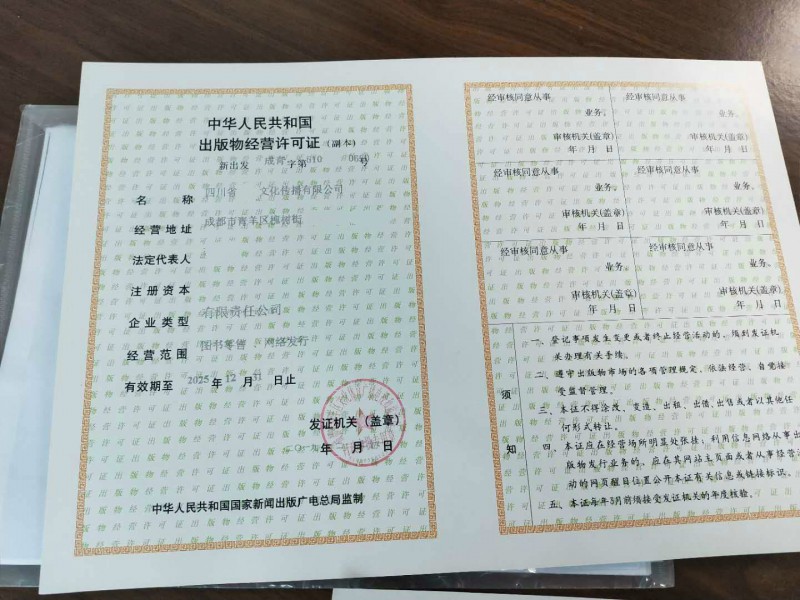 中华人民共和国
出版物经营许可证（副本）
新出发 成青 字第 510 号
名 称 四川省 文化传播有限公司
经营地址 成都市青羊区槐树街
法定代表人
注册资本
企业类型 有限责任公司
经营范围 图书零售 网络发行
有效期至 2025年12月31日止
发证机关（盖章）
年 月 日
中华人民共和国国家新闻出版广电总局监制
经审核同意从事
业务。
审核机关(盖章)
年 月 日
经审核同意从事
业务。
审核机关(盖章)
年 月 日
经审核同意从事
业务。
审核机关(盖章)
年 月 日
经审核同意从事
业务。
审核机关(盖章)
年 月 日
经审核同意从事
业务。
审核机关(盖章)
年 月 日
经审核同意从事
业务。
审核机关(盖章)
年 月 日
须知
一、登记事项发生变更或者终止经营活动的，须到发证机
关办理有关手续。
二、遵守出版物市场的各项管理规定，依法经营、自觉接
受监督管理。
三、本证不得涂改、变造、出租、出借、出售或者以其他任
何形式转让。
四、本证应在经营场所明显处张挂，利用信息网络从事出
版物发行业务的，应在其网站主页面或者从事经营活
动的网页醒目位置公开本证有关信息或链接标识。
五、本证每年3月前须接受发证机关的年度核验。